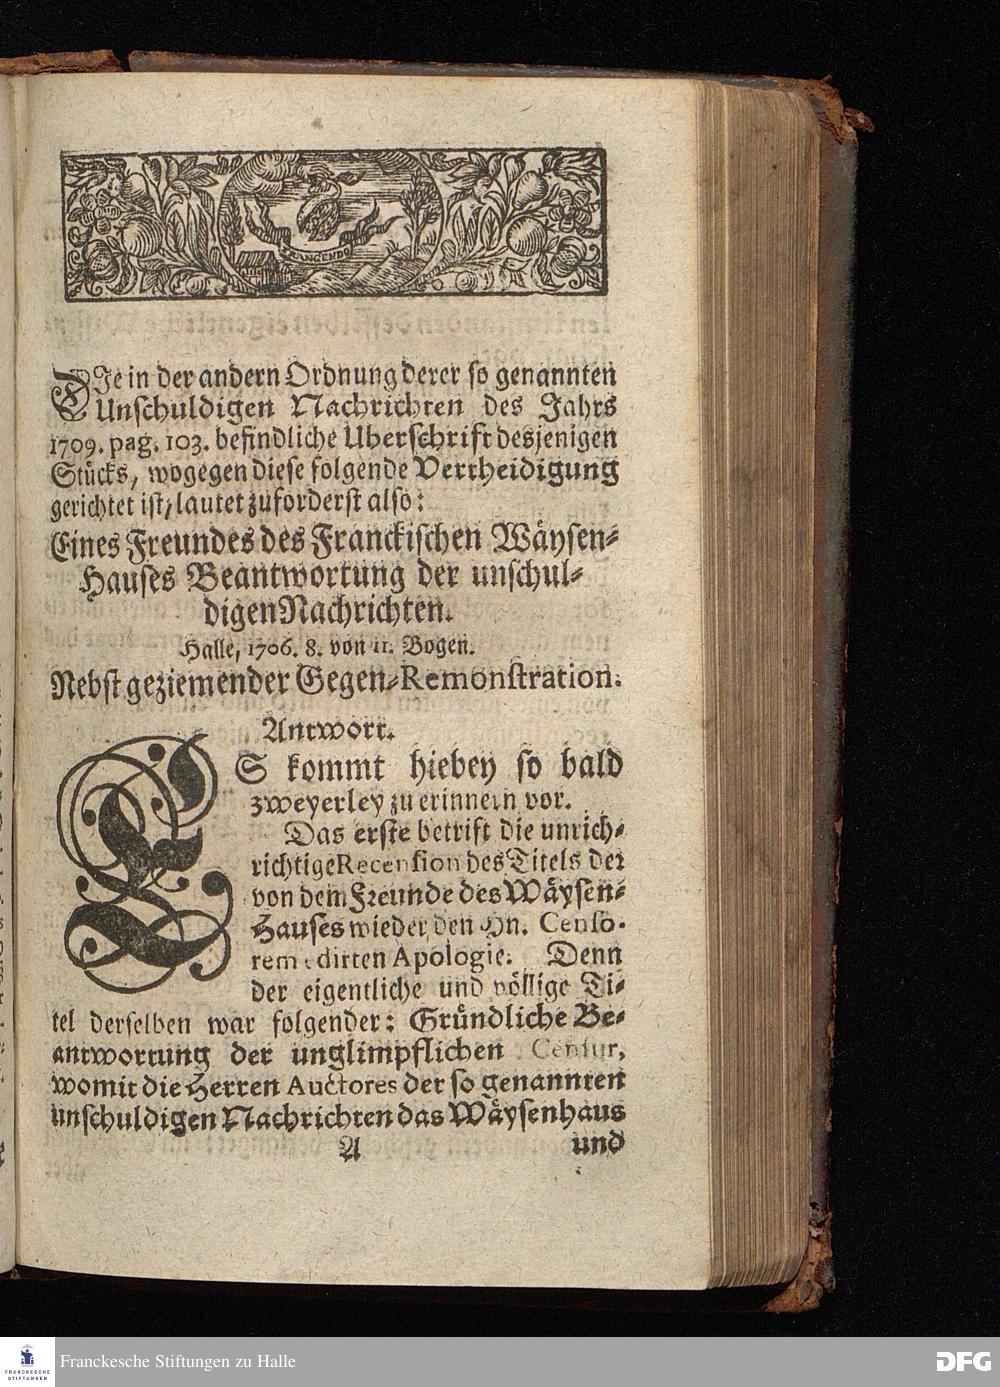 DIe in der andern Ordnung derer so genannten
Unschuldigen Nachrichten des Jahrs
1709. pag. 103. befindliche Uberschrift desjenigen
Stücks, wogegen diese folgende Vertheidigung
gerichtet ist, lautet zuforderst also:
Eines Freundes des Franckischen Wäysen-
Hauses Beantwortung der unschul-
digen Nachrichten.
Halle, 1706. 8. von 11. Bogen.
Nebst geziemender Gegen-Remonstration.
Antwort.
ES kommt hiebey so bald
zweyerley zu erinnern vor.
Das erste betrift die unrich-
richtige Recension des Titels der
von dem Freunde des Wäysen-
Hauses wieder den Hn. Censo-
rem edirten Apologie. Denn
der eigentliche und völlige Ti-
tel derselben war folgender: Gründliche Be-
antwortung der unglimpflichen Censur,
womit die Herren Auctores der so genannten
unschuldigen Nachrichten das Wäysenhaus
A und
FRANCKESCHE
STIFTUNGEN
Franckesche Stiftungen zu Halle
DFG